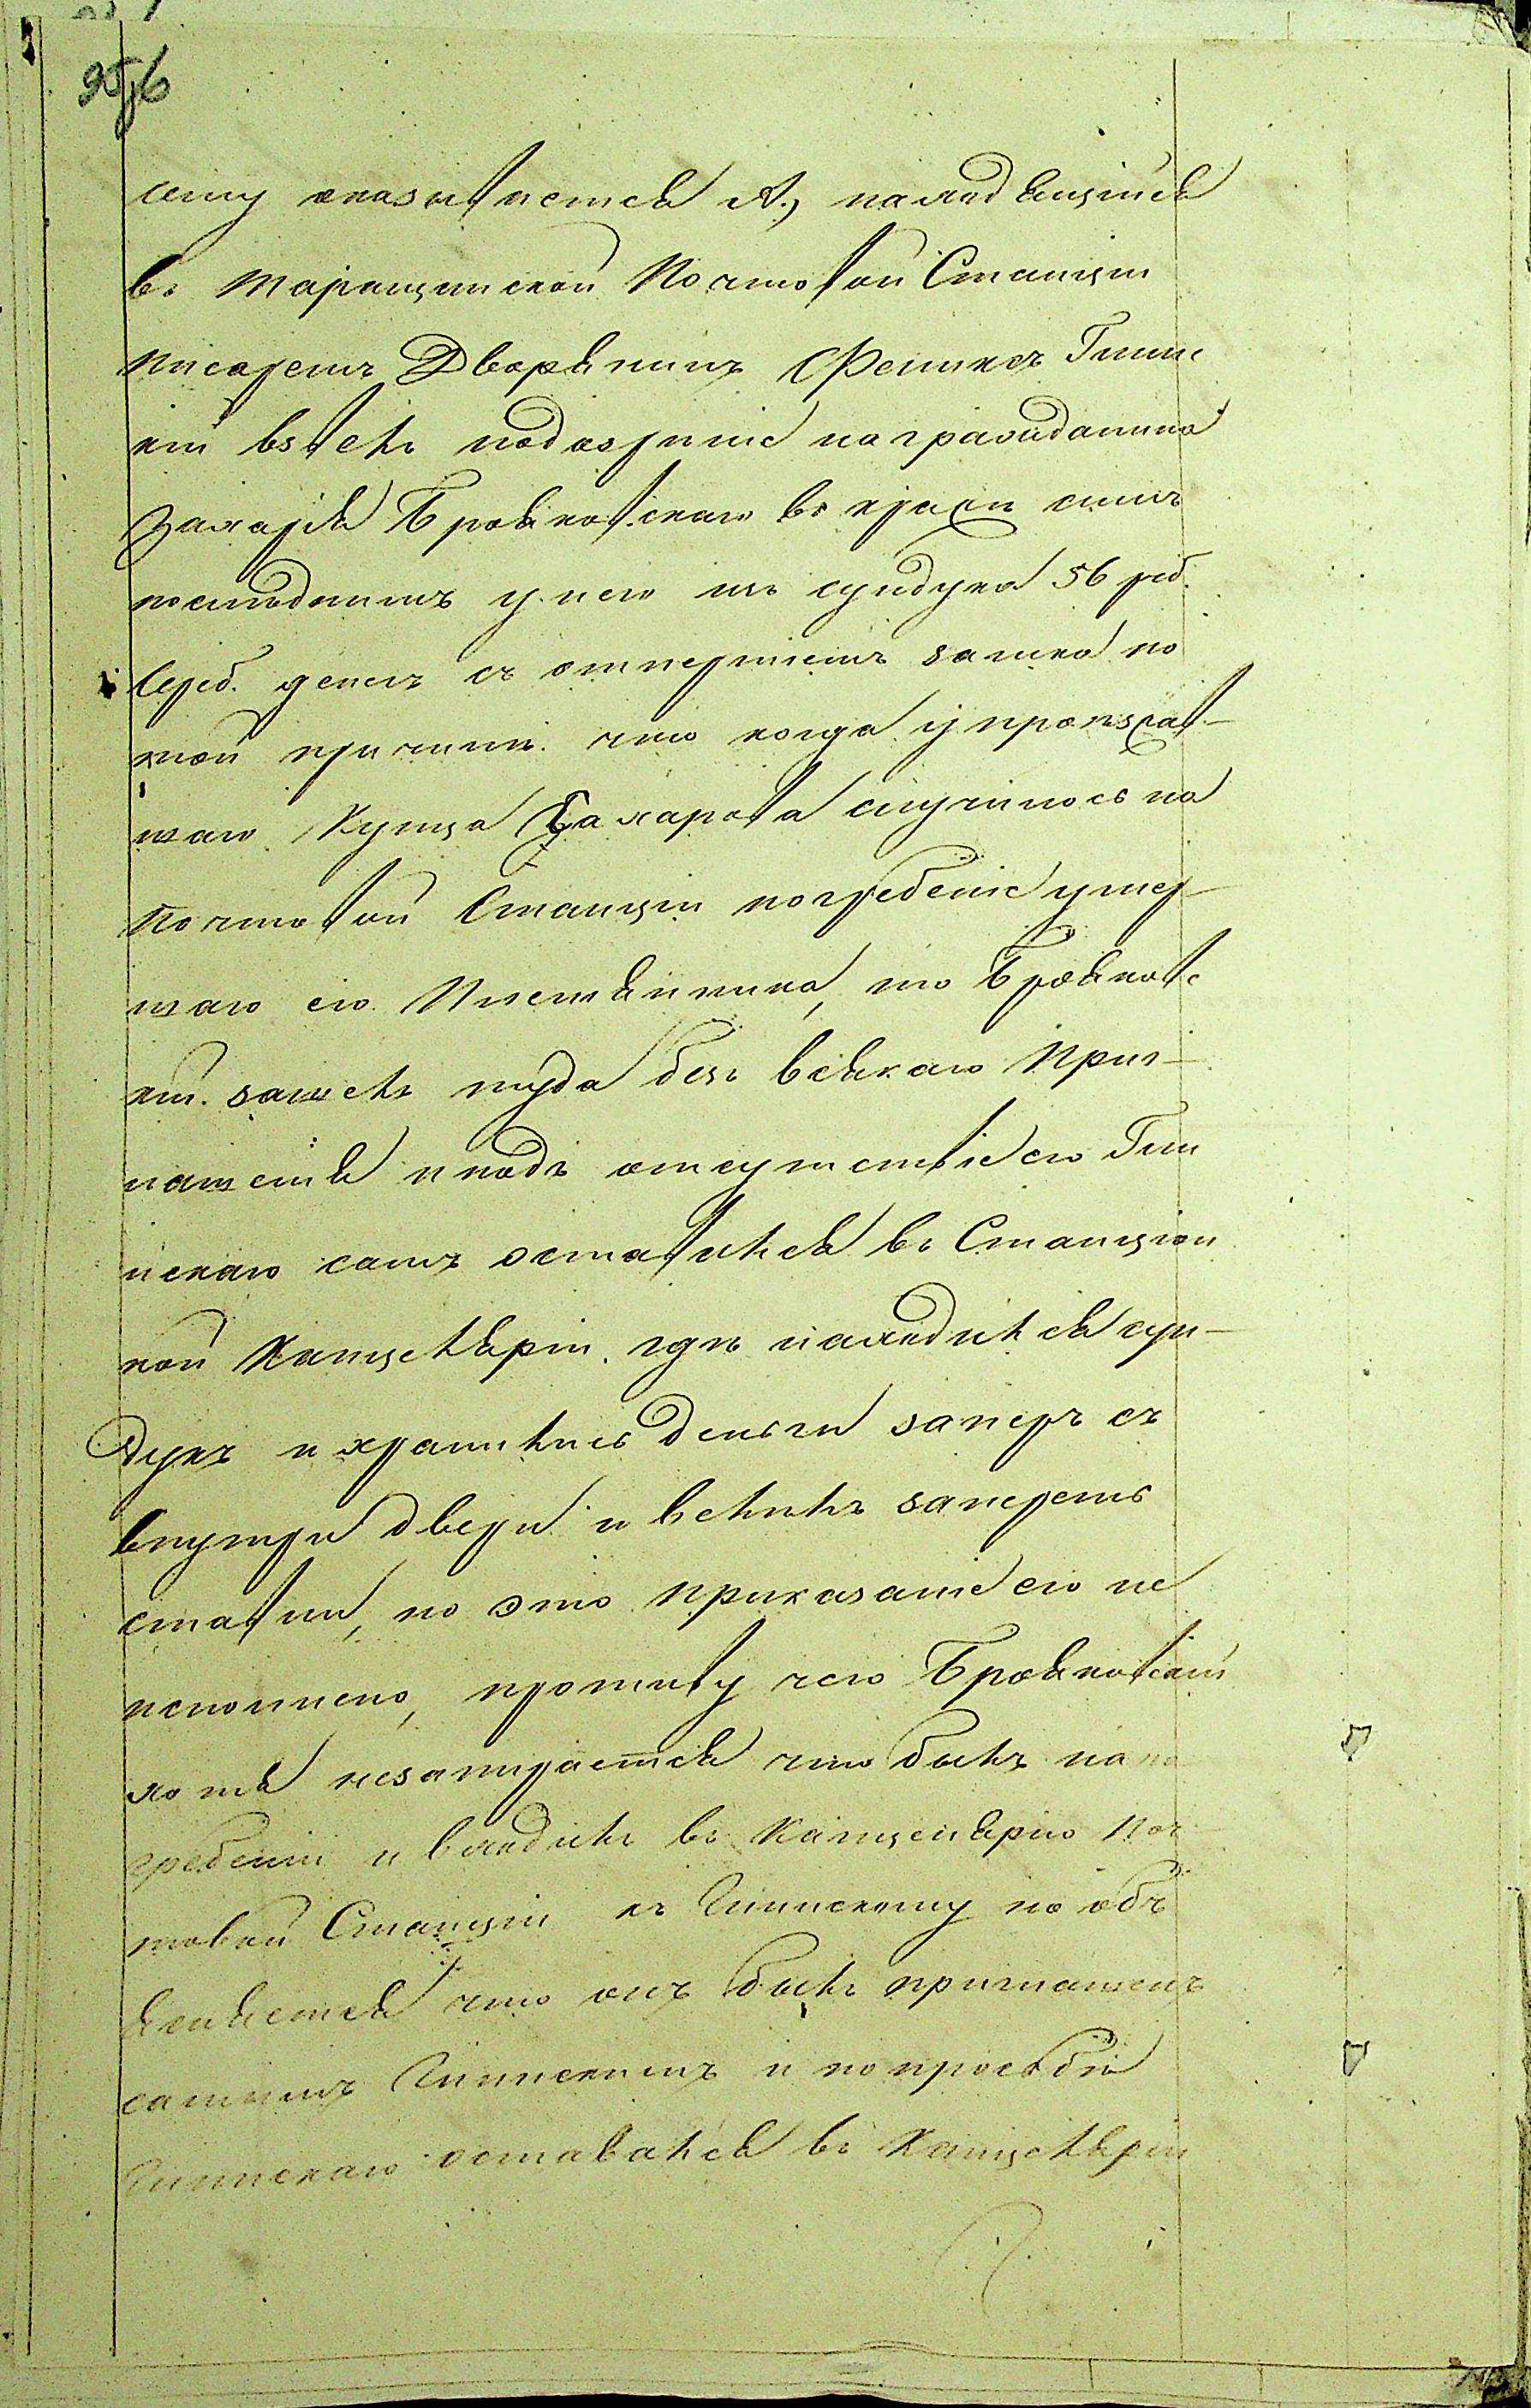 956
сему оказывается А., находящійся
въ Таращанской Почтовой Станціи
писаремъ Дворянинъ Феликсъ Глин
кій взвелъ подозреніе на гражданина
Захарія Брояковскаго въ кражи симъ
последнимъ у него изъ сундука 56 руб.
Сереб. денегъ съ отпертіемъ замка по
той причинѣ что когда у проезжав-
шаго Купца Захарова случилось на
Почтовой Станціи погребеніе умер-
шаго его Племянника, то Бровковс
кій зашелъ туда безъ всякаго Приг-
лашенія и подъ отсутствіе его
скаго самъ оставился въ Станціон
ной Канцеляріи гдѣ находился сун-
дукъ и хранились деньги заперъ съ
внутри двери и велелъ запереть
ставни, но это приказаніе его не
исполнено, противу чего Бровковскій
хотя незапирается что былъ на по
гребеніи и входилъ въ Канцелярію Поч
товой Станціи къ Глинскому но объ
ясняется что онъ былъ приглашенъ
самимъ Глинскимъ и по просьбѣ
Глинскаго оставался въ Канцеляріи